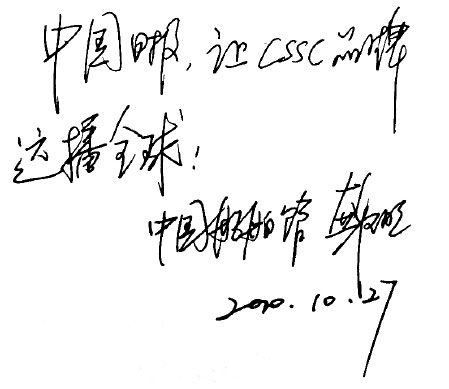 中国日报，让CSSC品牌
远播全球！
中国船舶馆
2010.10.27